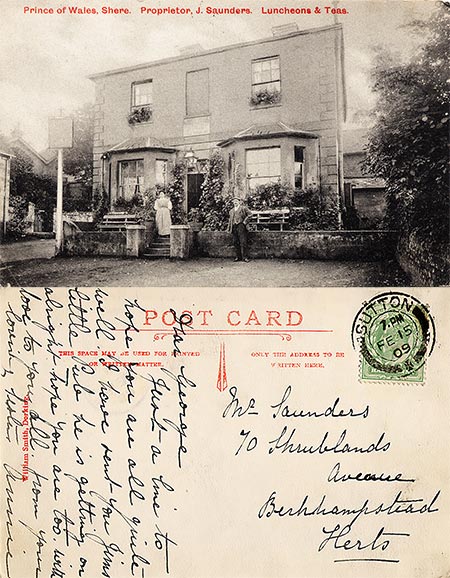 Prince of Wales, Shere. Proprietor, J. Saunders. Luncheons & Teas.
POST CARD
THIS SPACE MAY BE USED FOR PRINTED
OR WRITTEN MATTER.
ONLY THE ADDRESS TO BE
WRITTEN HERE.
SUTTON
7. PM
FE 15
09
Mr Saunders
70 Shrublands
Avenue
Berkhampstead
Herts
Dear George
Just a line to
hope you are all quite
well I have sent you Jims
little Pub he is getting on
alright hope you are too with
love to you all from your
loving sister Annie
William Smith, Dorking.